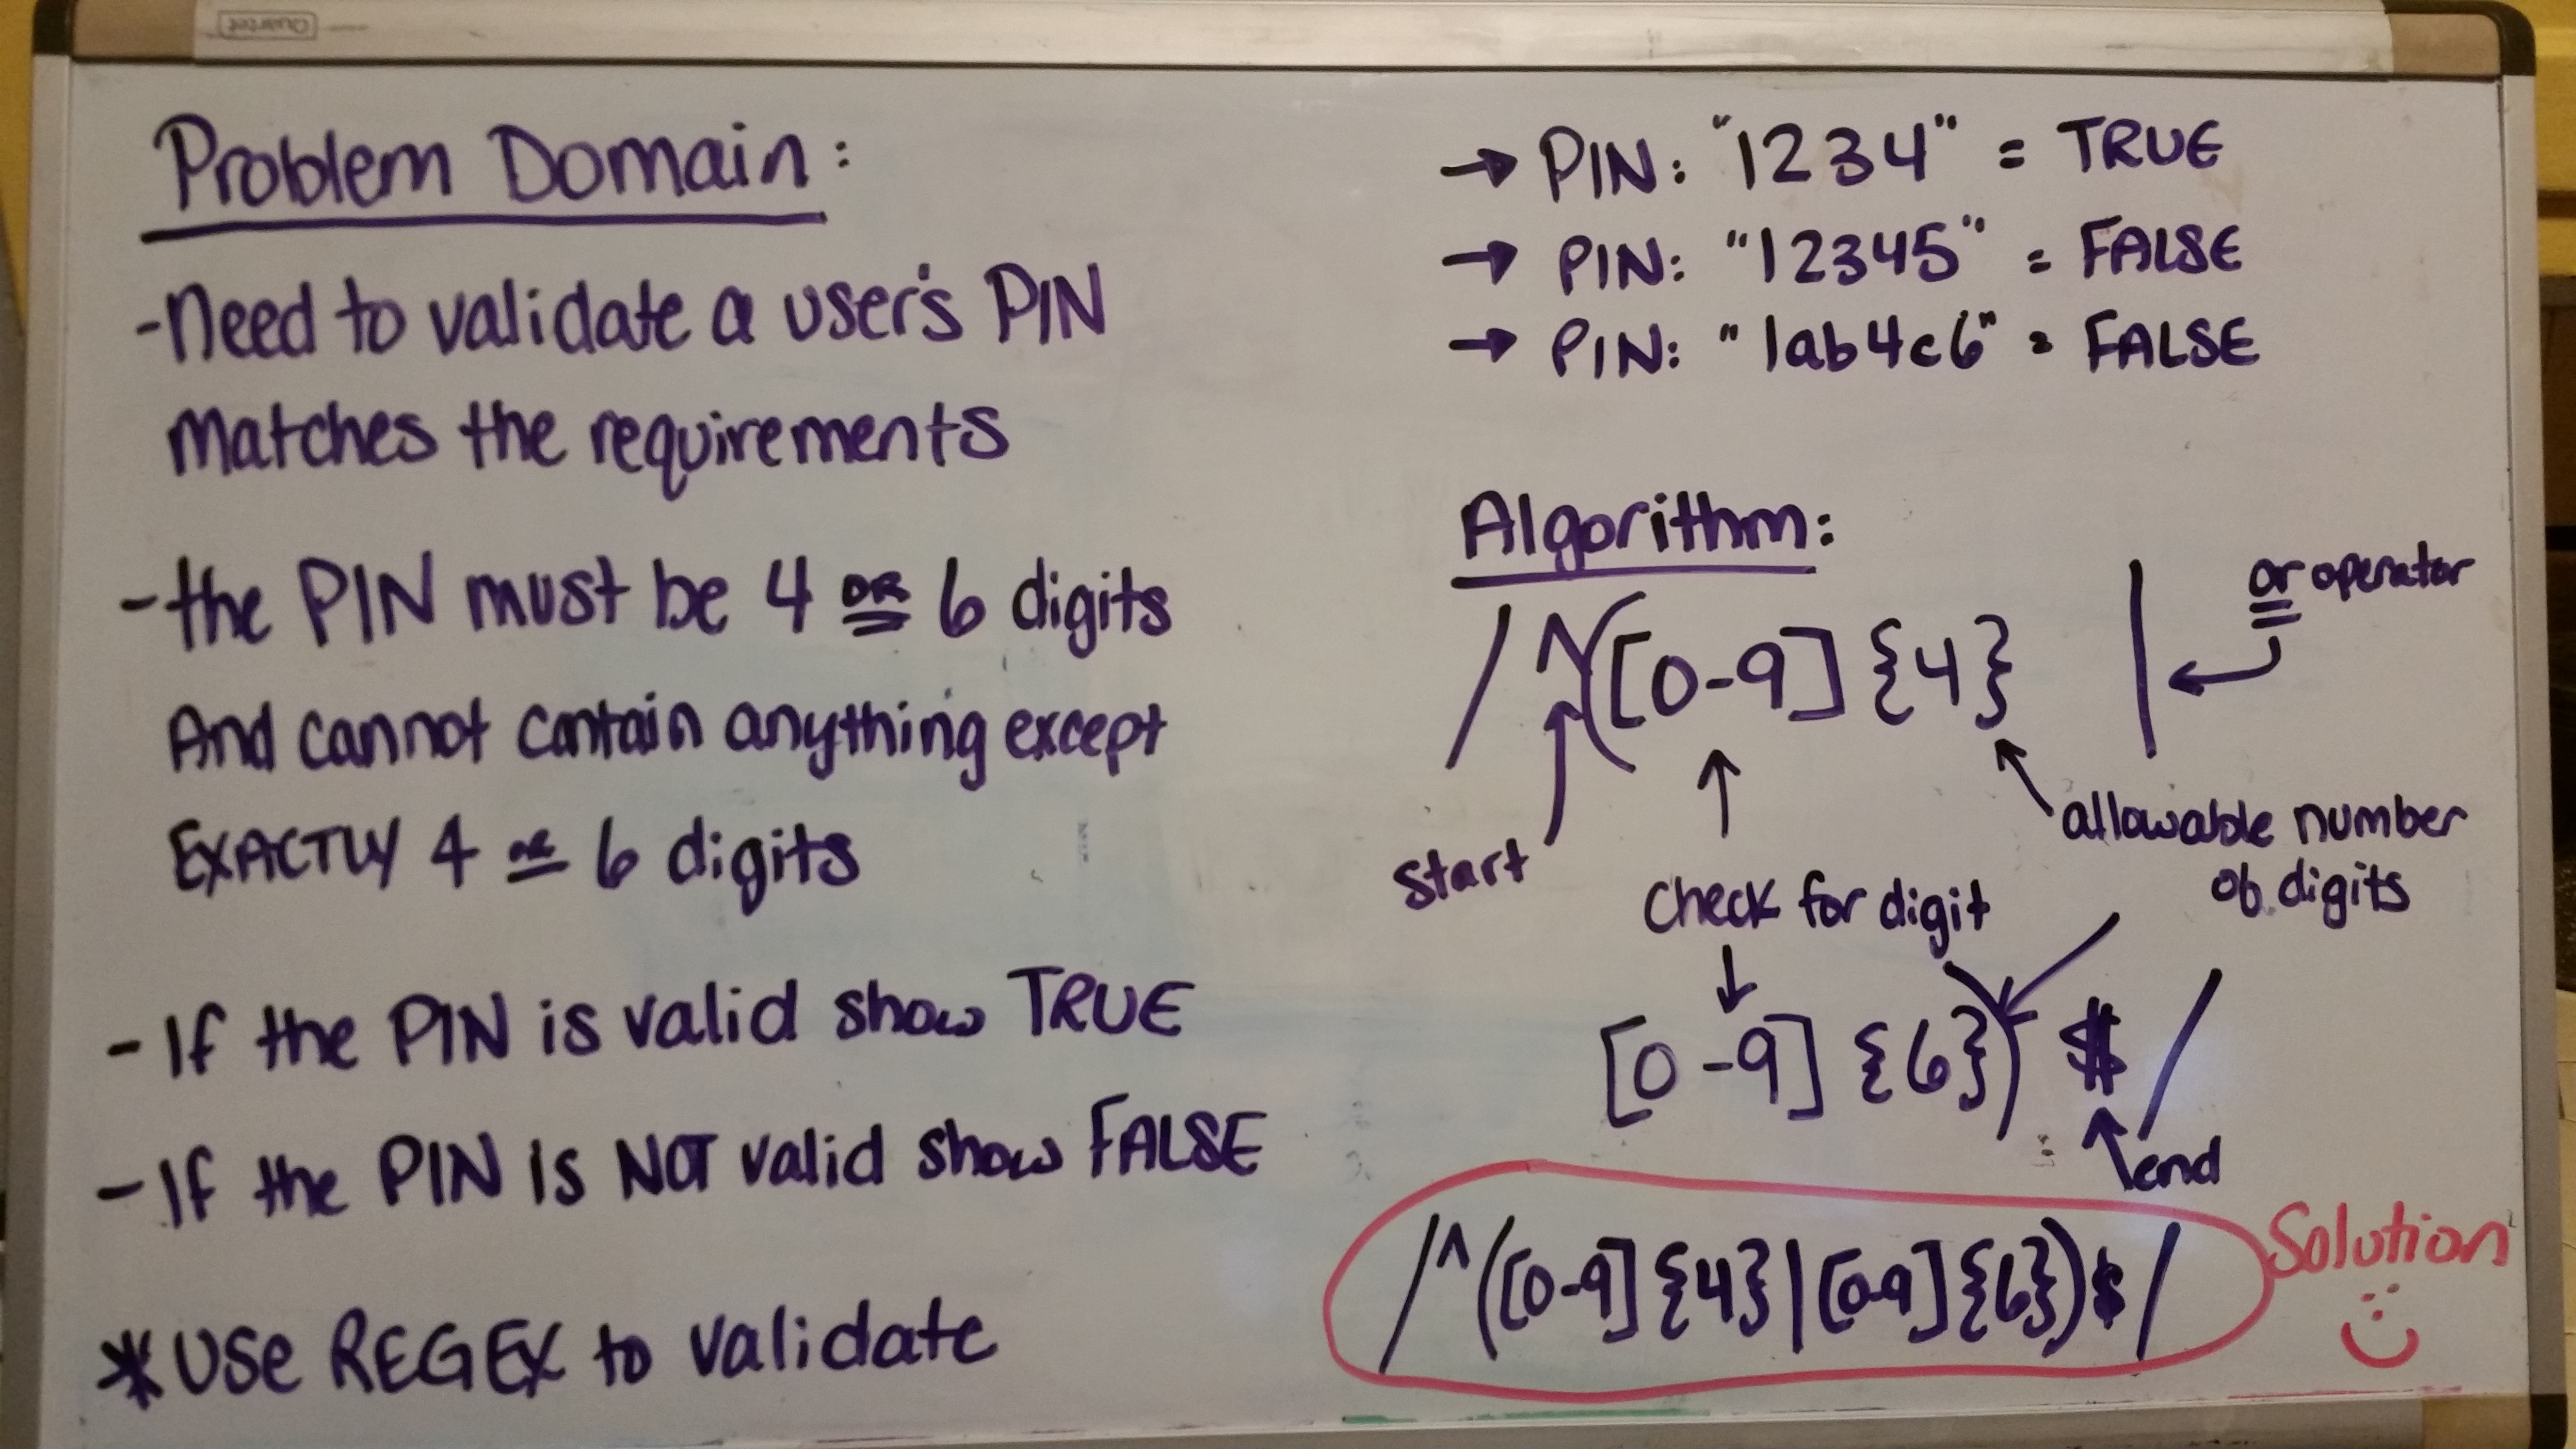 Quartet
Problem Domain:
-Need to validate a user's PIN
matches the requirements
-the PIN must be 4 OR 6 digits
And cannot contain anything except
EXACTLY 4 OR 6 digits
-If the PIN is valid show TRUE
-If the PIN is NOT valid show FALSE
*Use REGEX to validate
→ PIN: "1234" = TRUE
→ PIN: "12345" = FALSE
→ PIN: "1ab4c6" = FALSE
Algorithm:
/^([0-9]{4} |
or operator
start
check for digit
allowable number
of digits
[0-9]{6})$/
end
/^([0-9]{4}|[0-9]{6})$/
Solution